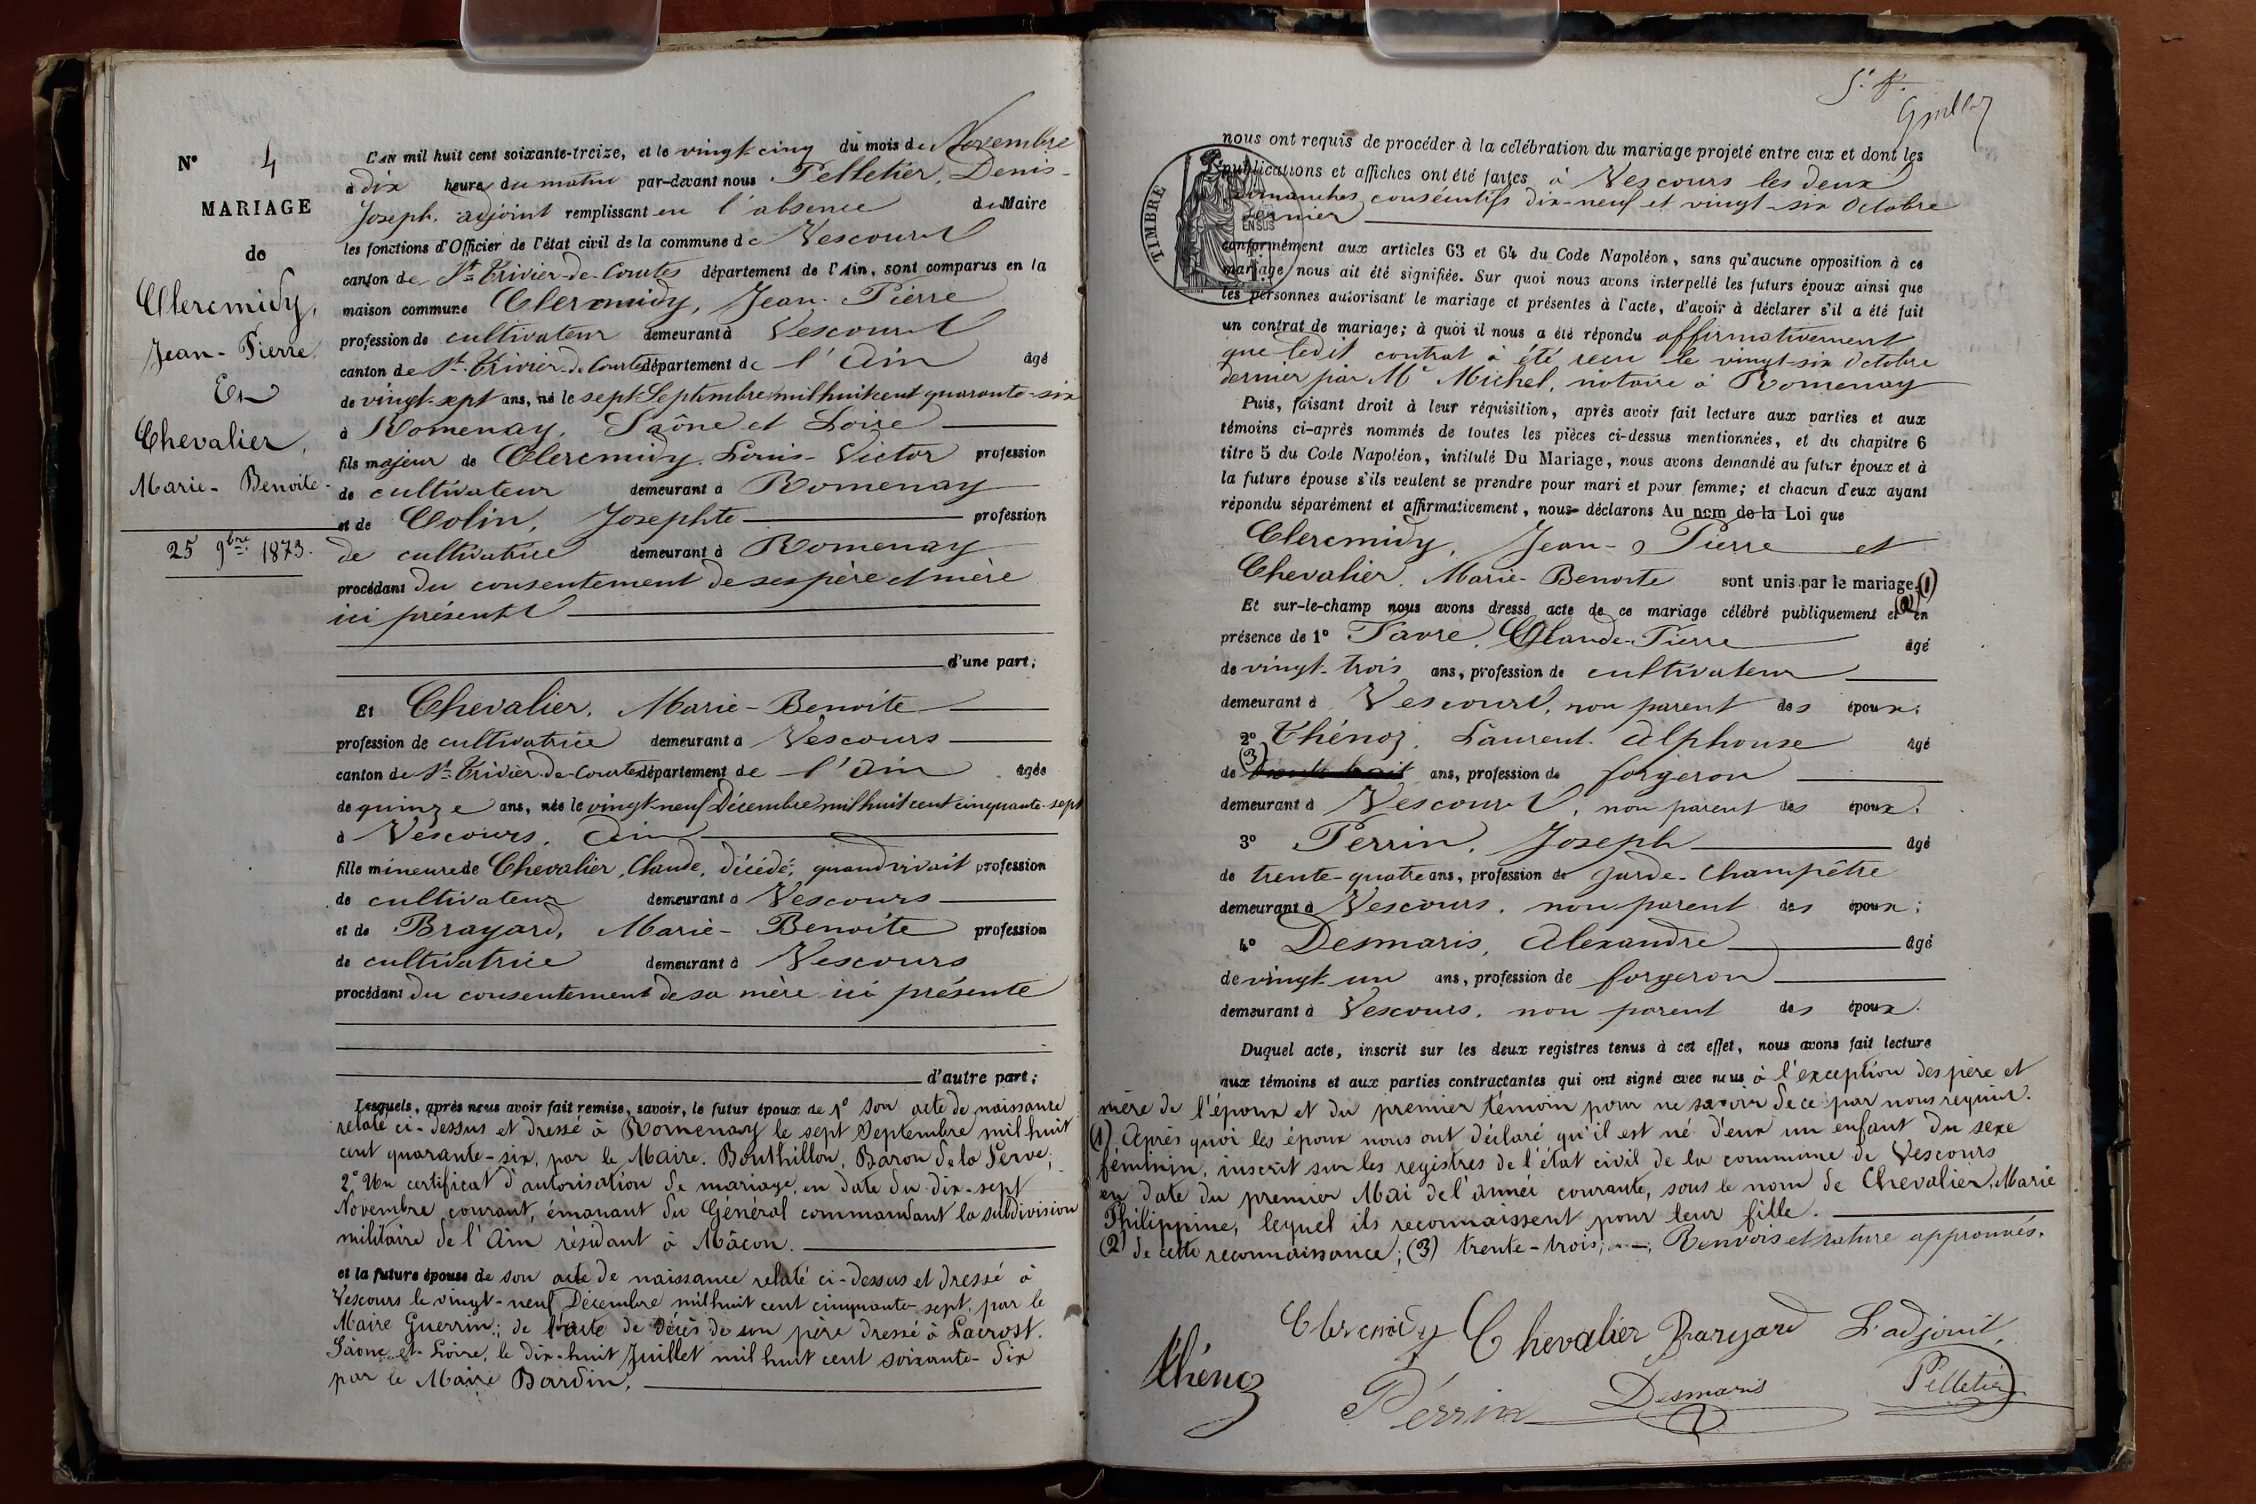 N° 4
MARIAGE
de
Clercmidy,
Jean-Pierre
Et
Chevalier,
Marie-Benoite.
25 9bre 1873.
L'AN mil huit cent soixante-treize, et le vingt-cinq du mois de Novembre
à dix heure du matin par-devant nous Pelletier, Denis-
Joseph, adjoint remplissant en l'absence du Maire
les fonctions d'Officier de l'état civil de la commune de Vescours
canton de St Trivier-de-Courtes département de l'Ain, sont comparus en la
maison commune Clercmidy, Jean-Pierre
profession de cultivateur demeurant à Vescours
canton de St Trivier-de-Courtes département de l'Ain âgé
de vingt-sept ans, né le sept Septembre mil huit cent quarante-six
à Romenay, Saône et Loire
fils majeur de Clercmidy, Louis-Victor profession
de cultivateur demeurant à Romenay
et de Colin, Josephte profession
de cultivatrice demeurant à Romenay
procédant du consentement de ses père et mère
ici présents
d'une part;
Et Chevalier, Marie-Benoite
profession de cultivatrice demeurant à Vescours
canton de St Trivier-de-Courtes département de l'Ain âgée
de quinze ans, née le vingt-neuf Décembre mil huit cent cinquante-sept
à Vescours, Ain
fille mineure de Chevalier, Claude, décédé, quand vivait profession
de cultivateur demeurant à Vescours
et de Brayard, Marie-Benoite profession
de cultivatrice demeurant à Vescours
procédant du consentement de sa mère ici présente
d'autre part;
Lesquels, après nous avoir fait remise, savoir, le futur époux de 1° son acte de naissance
relaté ci-dessus et dressé à Romenay le sept Septembre mil huit
cent quarante-six, par le Maire. Bouthillon, Baron de la Serve;
2° Un certificat d'autorisation de mariage, en date du dix-sept
Novembre courant, émanant du Général commandant la subdivision
militaire de l'Ain résidant à Mâcon.
et la future épouse de son acte de naissance relaté ci-dessus et dressé à
Vescours le vingt-neuf Décembre mil huit cent cinquante-sept, par le
Maire Guerrin; de l'acte de décès de son père dressé à Lacrost.
Saône et Loire, le dix-huit Juillet mil huit cent soixante-dix
par le Maire Bardin;
nous ont requis de procéder à la célébration du mariage projeté entre eux et dont les
publications et affiches ont été faites à Vescours les deux
dimanches consécutifs dix-neuf et vingt-six Octobre
dernier
TIMBRE
EN SUS
conformément aux articles 63 et 64 du Code Napoléon, sans qu'aucune opposition à ce
mariage nous ait été signifiée. Sur quoi nous avons interpellé les futurs époux ainsi que
les personnes autorisant le mariage et présentes à l'acte, d'avoir à déclarer s'il a été fait
un contrat de mariage; à quoi il nous a été répondu affirmativement
que ledit contrat a été reçu le vingt-six Octobre
dernier par Me Michel, notaire à Romenay
Puis, faisant droit à leur réquisition, après avoir fait lecture aux parties et aux
témoins ci-après nommés de toutes les pièces ci-dessus mentionnées, et du chapitre 6
titre 5 du Code Napoléon, intitulé Du Mariage, nous avons demandé au futur époux et à
la future épouse s'ils veulent se prendre pour mari et pour femme; et chacun d'eux ayant
répondu séparément et affirmativement, nous déclarons Au nom de la Loi que
Clercmidy, Jean-Pierre et
Chevalier, Marie-Benoite sont unis par le mariage. (1)
Et sur-le-champ nous avons dressé acte de ce mariage célébré publiquement et (2) en
présence de 1° Favre, Claude-Pierre âgé
de vingt-trois ans, profession de cultivateur
demeurant à Vescours, non parent des époux;
2° Thénoz, Laurent-Alphonse âgé
de (3) ans, profession de forgeron
demeurant à Vescours, non parent des époux;
3° Perrin, Joseph âgé
de trente-quatre ans, profession de garde-champêtre
demeurant à Vescours, non parent des époux;
4° Desmaris, Alexandre âgé
de vingt-un ans, profession de forgeron
demeurant à Vescours, non parent des époux.
Duquel acte, inscrit sur les deux registres tenus à cet effet, nous avons fait lecture
aux témoins et aux parties contractantes qui ont signé avec nous à l'exception des père et
mère de l'époux et du premier témoin pour ne savoir de ce par nous requis.
(1) Après quoi les époux nous ont déclaré qu'il est né d'eux un enfant du sexe
féminin, inscrit sur les registres de l'état civil de la commune de Vescours
en date du premier Mai de l'année courante, sous le nom de Chevalier, Marie
Philippine, lequel ils reconnaissent pour leur fille.
(2) de cette reconnaissance; (3) trente-trois; Renvois et rature approuvés.
Clercmidy Chevalier Brayard L'adjoint,
Thénoz Perrin Desmaris Pelletier